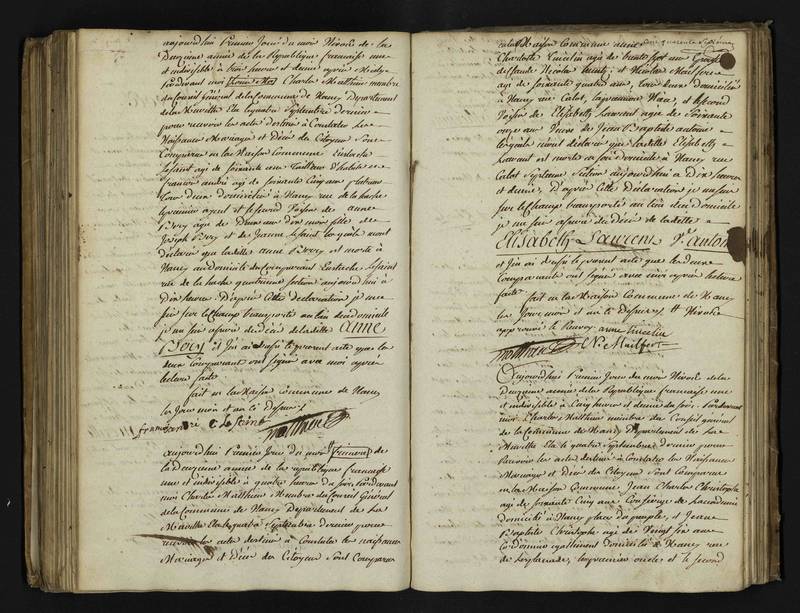 aujourd'hui Premier Jour du mois Nivôse de la
Deuxieme année de la République française une
et indivisible à onze heures et demie après Midy
Pardevant moi Charles Matthieu membre
du Conseil Général de la Commune de Nancy Département
de la Meurthe Elu le quatre Septembre dernier
pour recevoir les actes destinés à Constater les
Naissances Mariages et Décès des Citoyens Sont
Comparus en la Maison Commune Eustache
Lesaint agé de soixante ans Tailleur d'habits et
francois andré agé de soixante Cinq ans platrier
tous deux domiciliés à Nancy rue de la hache
le premier ayeul et le second Voisin de anne
Bory agée de Deux ans dix mois fille de
Joseph Bory et de Jeanne Lesaint lesquels m'ont
déclaré que ladite anne Bory est morte à
Nancy au domicile du Comparant Eustache Lesaint
rue de la hache quatrieme section aujourd'hui à
Dix heures D'après Cette déclaration je me
suis sur le Champ transporté au lieu du domicile
je me suis assuré du décès de ladite anne
Bory et j'en ai dressé le present acte que les
deux Comparants ont signé avec moi après
lecture faite
fait en la Maison Commune de Nancy
les Jour mois et an ci Dessus
francois andré e Le Saint
Matthieu
aujourdhui Premier Jour du mois de
la Deuxieme année de la republique francaise
une et indivisible à quatre heures du soir Pardevant
moi Charles Matthieu Membre du Conseil Général
de la Commune de Nancy Departement de la
Meurthe Elu le quatre Septembre dernier pour
recevoir les actes destinés à Constater les naissances
Mariages et Décès des Citoyens sont Comparus
en la Maison Commune anne
Charlotte Vincelin agée de trente sept ans
Nicolas et Nicolas Mailfert
agé de soixante quatre ans, tous deux Domiciliés
à Nancy rue Callot, la premiere Niece, et le second
Voisin de Elisabeth Laurent agée de soixante
onze ans Veuve de Jean Baptiste antoine
lesquels m'ont déclaré que ladite Elisabeth
Laurent est morte à son domicile à Nancy rue
Calot Septieme Section aujourd'hui à Dix heures
et demie, D'après Cette Déclaration je me suis
sur le Champ transporté au lieu du domicile
je me suis assuré du Décès de ladite
Elisabeth Laurent Ve. antoine
et j'en ai dressé le present acte que les deux
Comparants ont signé avec moi après lecture
faite
fait en la Maison Commune de Nancy
les Jour mois et an ci Dessus
approuvé le Renvoy anne Vincelin
Matthieu N. Mailfert
Aujourdhui Premier Jour du mois de Nivôse de la
Deuxieme année de la Republique francaise une
et indivisible à Cinq heures et demie du soir Pardevant
moi Charles Matthieu membre du Conseil général
de la Commune de Nancy Departement de la
Meurthe Elu le quatre Septembre dernier pour
Recevoir les actes destinés à Constater les Naissances
Mariages et Décès des Citoyens Sont Comparus
en la Maison Commune Jean Charles Christophe
agé de soixante Cinq ans Concierge de
domicilié à Nancy place du peuple, et Jean
Baptiste Christophe agé de Vingt six ans
Cordonnier egallement domicilié à Nancy rue
de l'esplanade, le premier oncle et le second